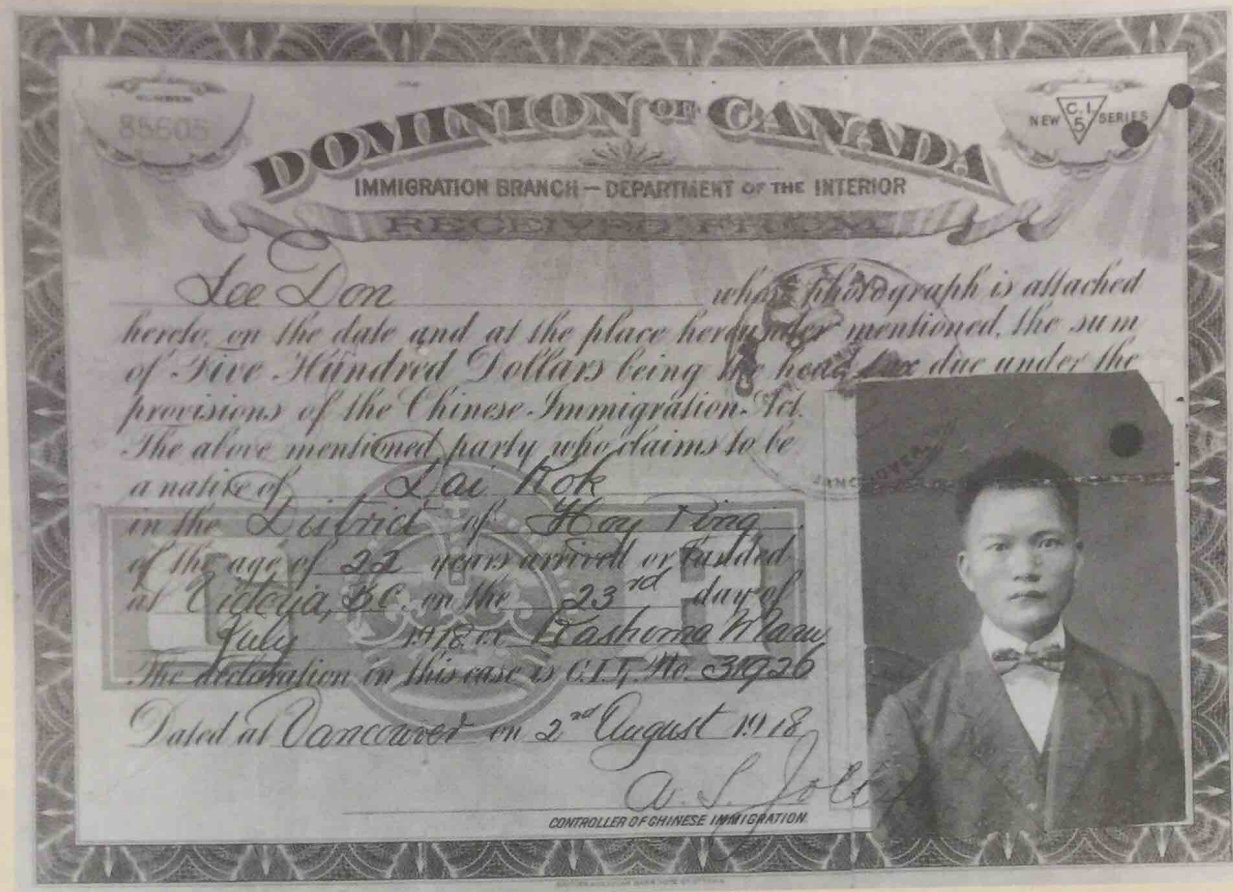 NUMBER
85605
NEW C.I. 5 SERIES
DOMINION OF CANADA
IMMIGRATION BRANCH – DEPARTMENT OF THE INTERIOR
RECEIVED FROM
Lee Don whose photograph is attached
hereto, on the date and at the place hereunder mentioned, the sum
of Five Hundred Dollars being the head tax due under the
provisions of the Chinese Immigration Act.
The above mentioned party who claims to be
a native of Dai Kok
in the District of Hoy Ping
of the age of 22 years arrived or landed
at Victoria, B.C. on the 23rd day of
July 1918 ex Kashoma Maru
The declaration in this case is C.I.5, No. 31926
Dated at Vancouver on 2nd August 1918
CONTROLLER OF CHINESE IMMIGRATION